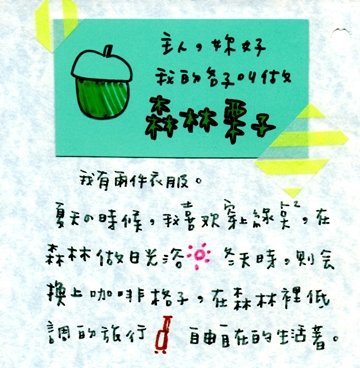 主人,妳好
我的名子叫做
森林栗子
我有兩件衣服。
夏天の時候,我喜欢穿上綠色,在
森林做日光浴 冬天時,則會
換上咖啡格子,在森林裡低
調的旅行 自由自在的生活著。